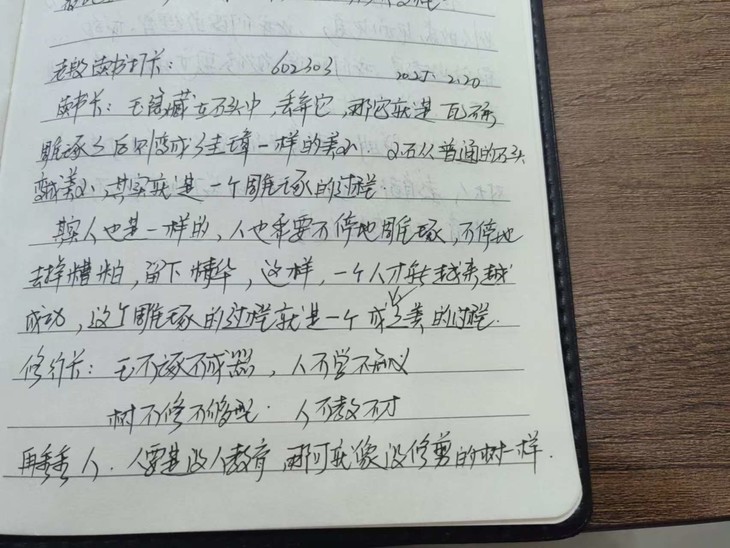 老殷读书打卡： 602303 2025.2.20
读书卡：玉隐藏在石头中，丢弃它，那它就是瓦砾
雕琢了后则变成了圭璋一样的美。石从普通的石头
变成美，其实就是一个雕琢的过程.
其实人也是一样的，人也需要不停地雕琢，不停地
去掉糟粕，留下精华，这样，一个人才能越来越
成功，这个雕琢的过程就是一个成美的过程.
修行卡：玉不琢不成器，人不学不知义
树不修不 人不教不才
再 人.人要是没人教育，那可就像没修剪的树一样.